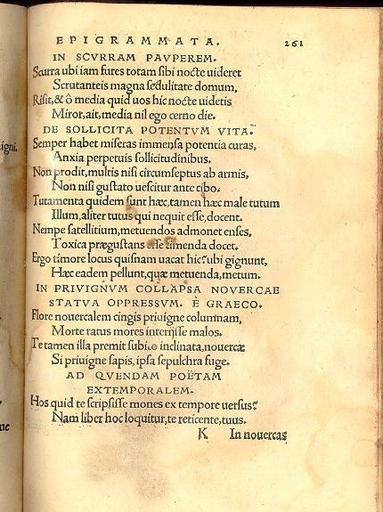 igni.
ne
EPIGRAMMATA. 261
IN SCVRRAM PAVPEREM.
Scurra ubi iam fures totam sibi nocte uideret
Scrutanteis magna sedulitate domum,
Risit, & ô media quid uos hic nocte uidetis
Miror, ait, media nil ego cerno die.
DE SOLLICITA POTENTVM VITA.
Semper habet miseras immensa potentia curas,
Anxia perpetuis sollicitudinibus.
Non prodit, multis nisi circumseptus ab armis,
Non nisi gustato uescitur ante cibo.
Tutamenta quidem sunt hæc, tamen hæc male tutum
Illum, aliter tutus qui nequit esse, docent.
Nempe satellitium, metuendos admonet enses,
Toxica prægustans esse timenda docet.
Ergo timore locus quisnam uacat hic? ubi gignunt,
Hæc eadem pellunt, quæ metuenda, metum.
IN PRIVIGNVM COLLAPSA NOVERCAE
STATVA OPPRESSVM. È GRAECO.
Flore nouercalem cingis priuigne columnam,
Morte ratus mores interijsse malos.
Te tamen illa premit subito inclinata, nouercæ
Si priuigne sapis, ipsa sepulchra fuge.
AD QVENDAM POËTAM
EXTEMPORALEM.
Hos quid te scripsisse mones ex tempore uersus?
Nam liber hoc loquitur, te reticente, tuus.
K In nouercas